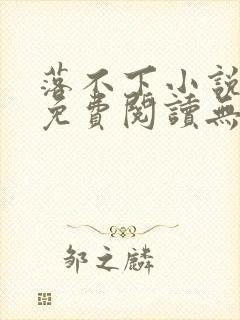 落不下小說
免費閱讀無
邹之麟